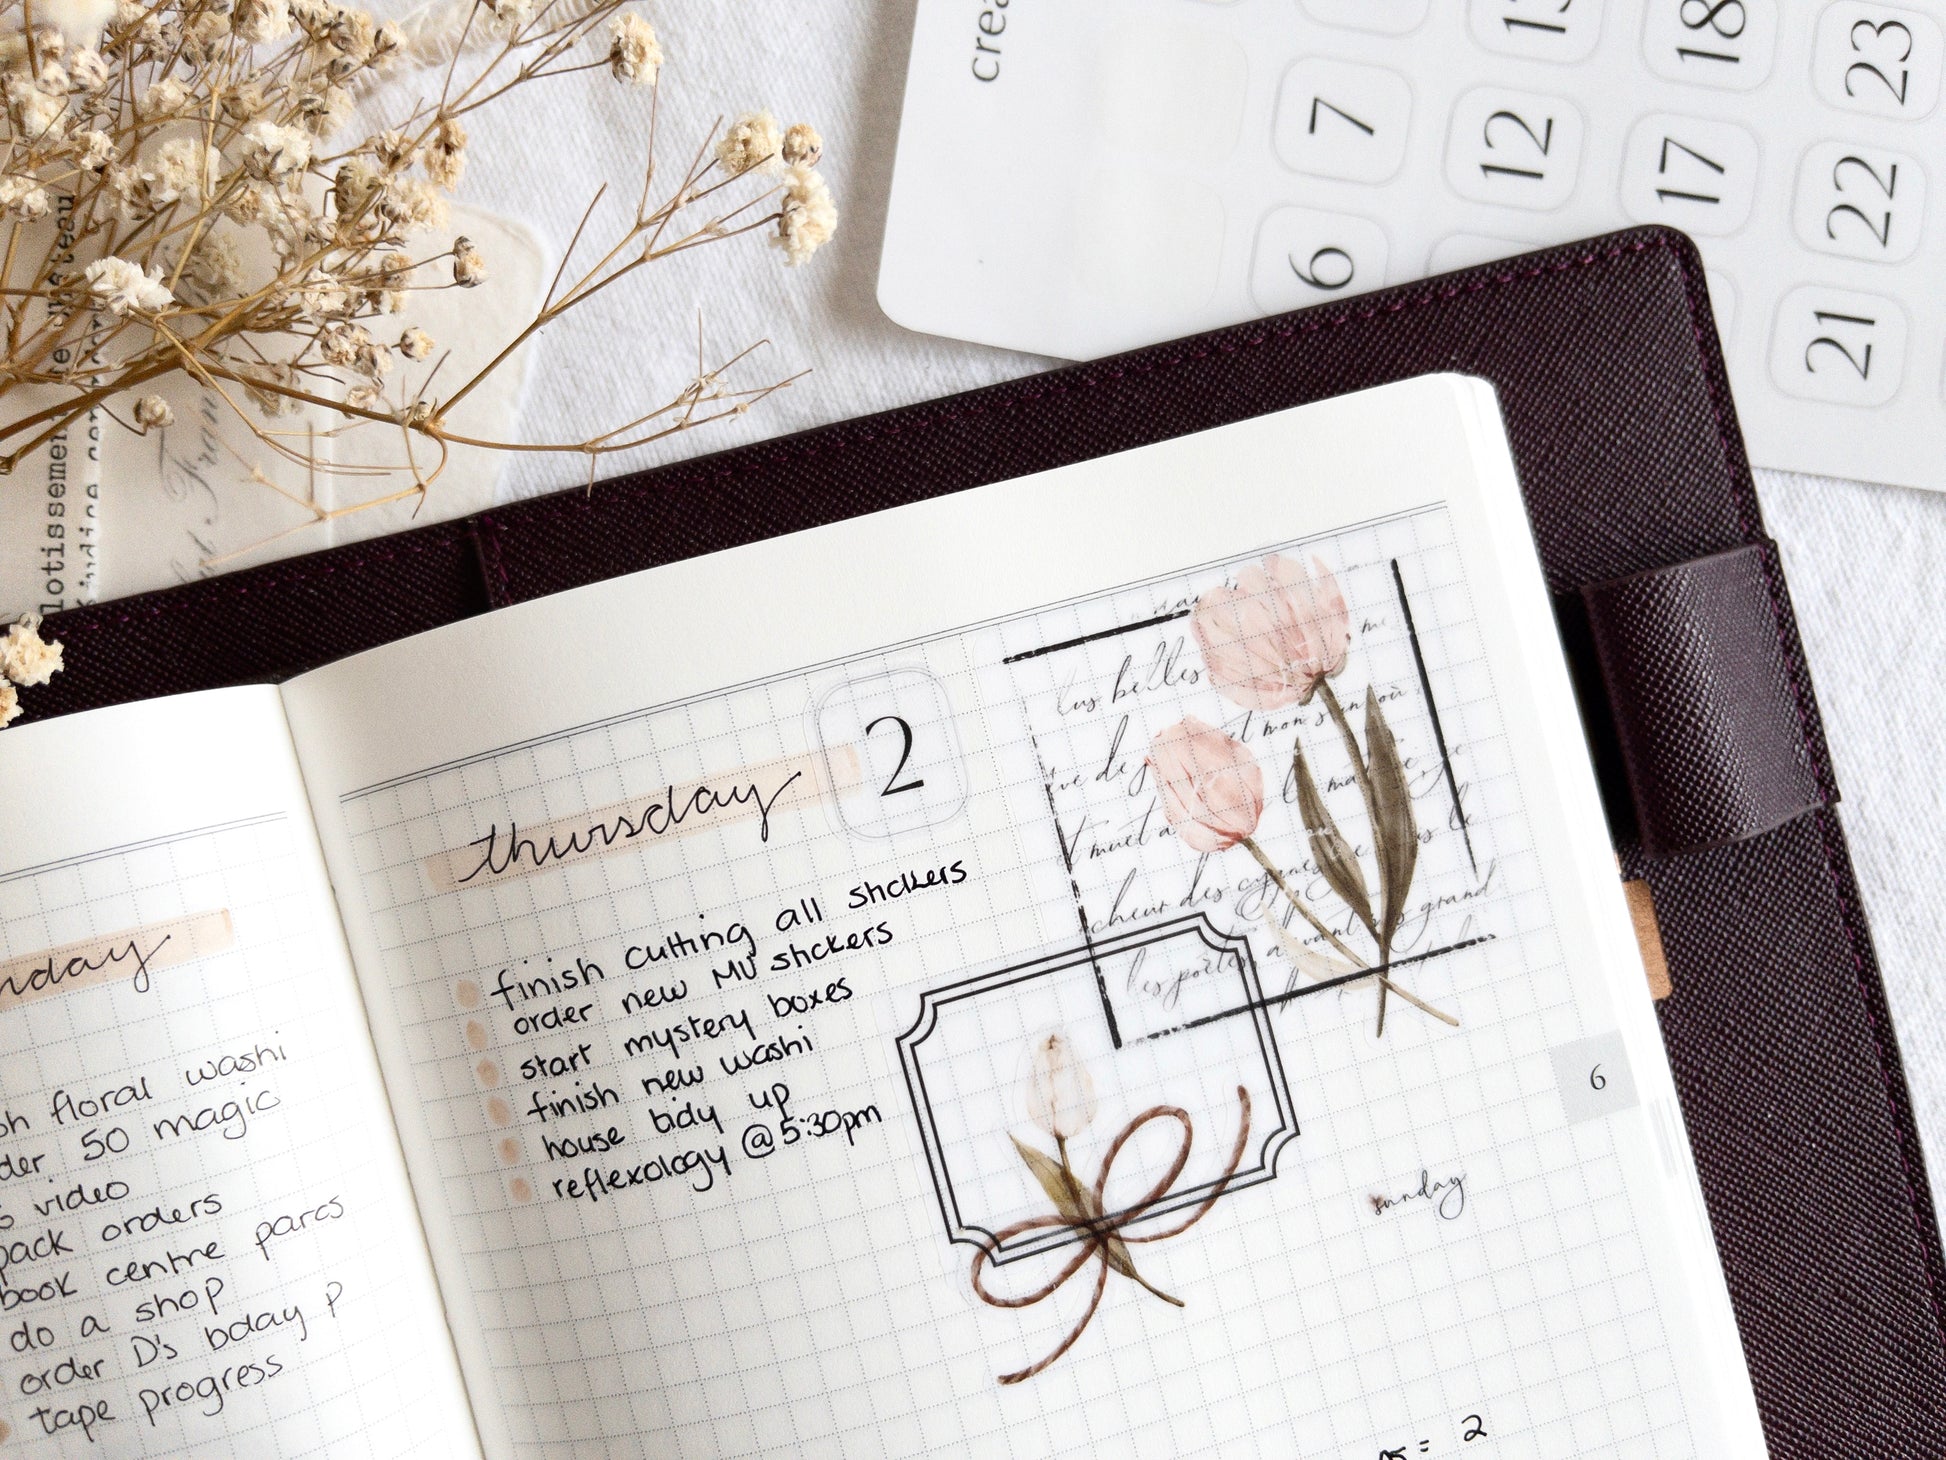 crea
7
12
13
18
17
23
22
6
21
lotissement
thursday
2
finish cutting all stickers
order new MU stickers
start mystery boxes
finish new washi
house tidy up
reflexology @ 5:30pm
nday
floral washi
50 magic
video
pack orders
book centre parcs
do a shop
order D's bday P
tape progress
lus belles
me
et mon
cheur des cygnes
grand
les poètes
6
sunday
= 2